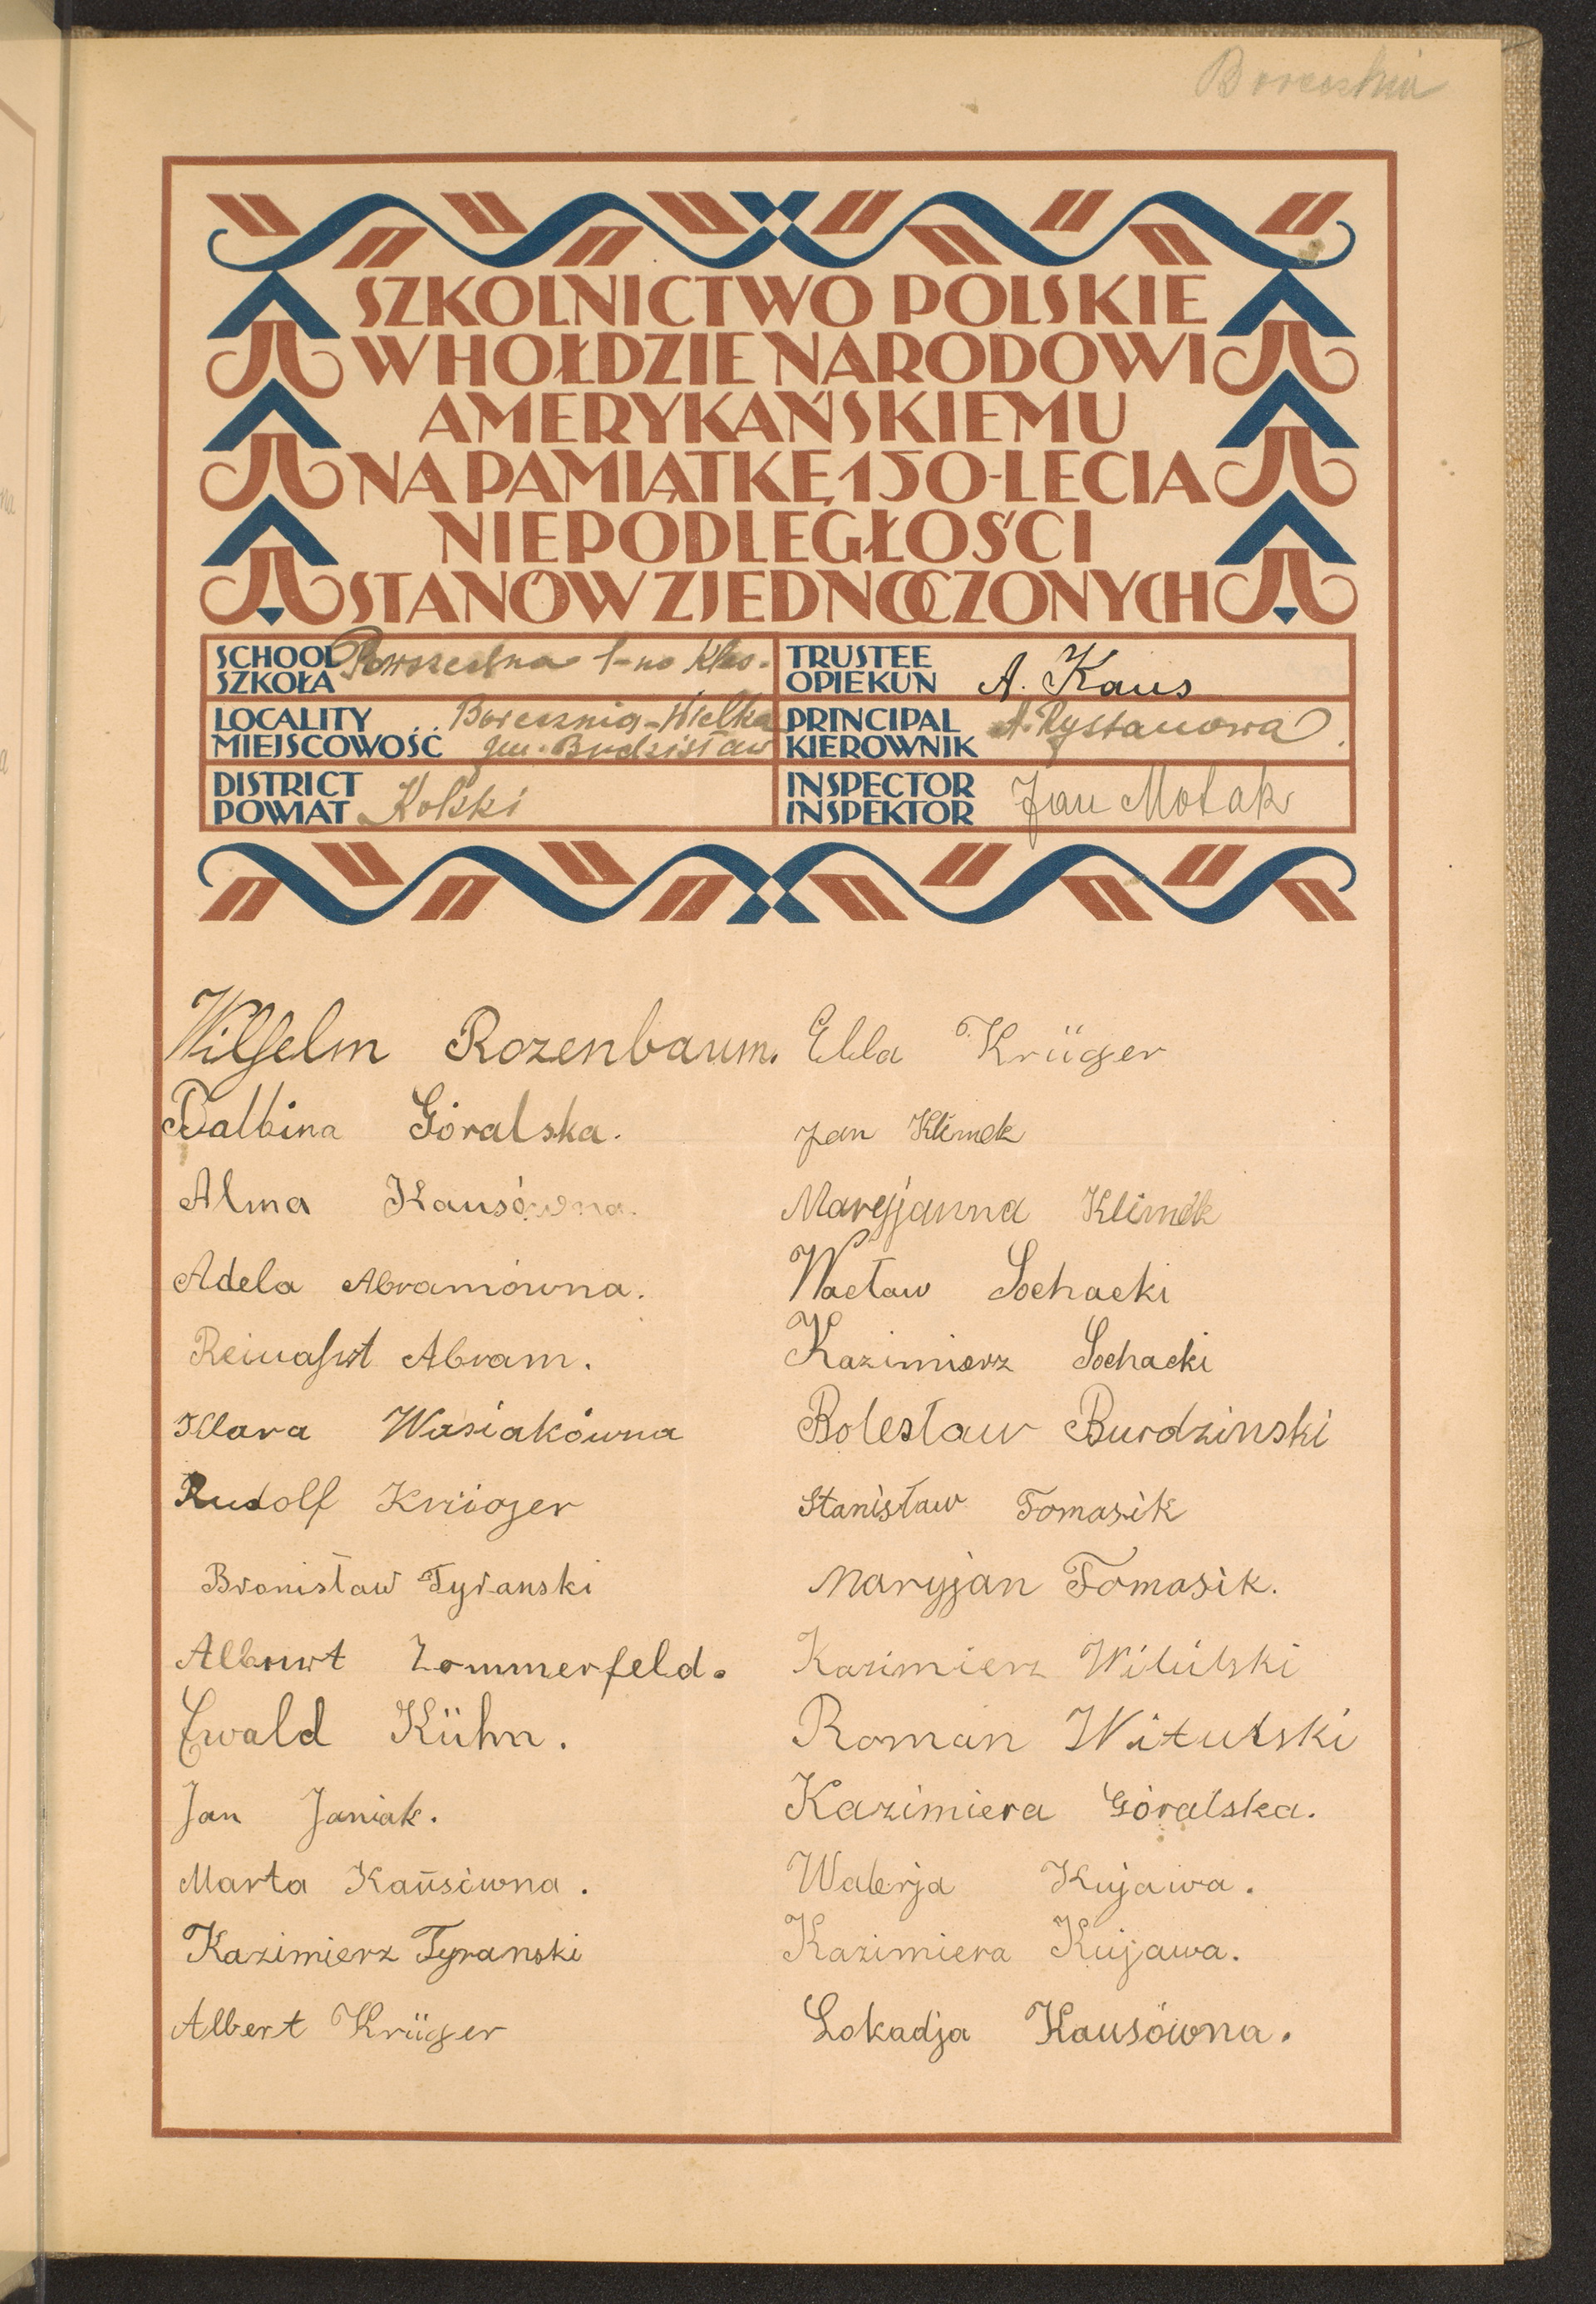 SZKOLNICTWO POLSKIE
W HOŁDZIE NARODOWI
AMERYKAŃSKIEMU
NA PAMIĄTKĘ 150-LECIA
NIEPODLEGŁOŚCI
STANÓW ZJEDNOCZONYCH
SCHOOL
SZKOŁA
Powszechna 1-no Klas.
TRUSTEE
OPIEKUN
A. Kaus
LOCALITY
MIEJSCOWOŚĆ
Borecznia-Wielka
gm. Budzisław
PRINCIPAL
KIEROWNIK
DISTRICT
POWIAT
Kolski
INSPECTOR
INSPEKTOR
Jan Motak
Wilhelm Rozenbaum.
Balbina Góralska.
Alma Kausówna.
Adela Abramówna.
Abram.
Klara Wasiakówna
Rudolf Krüger
Bronisław Tyranski
Zommerfeld.
Ewald Kühn.
Jan Janiak.
Marta Kaŭsówna.
Kazimierz Tyranski
Albert Krüger
Ella Krüger
Jan Klimek
Maryjanna Klimek
Wacław Sochacki
Kazimierz Sochacki
Bolesław Burdzinski
Stanisław Tomasik
Maryjan Tomasik.
Kazimierz Witulski
Roman Witulski
Kazimiera Góralska.
Walerja Kujawa.
Kazimiera Kujawa.
Lokadja Kausówna.